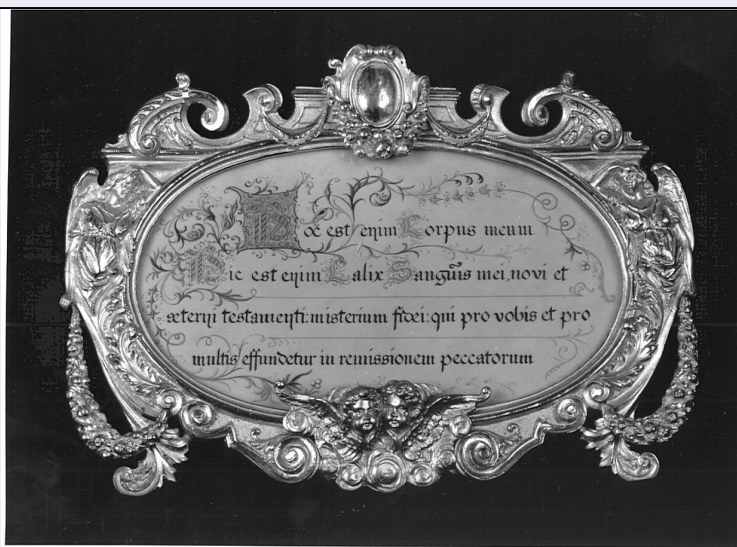 Hoc est enim Corpus meum
Hic est enim Calix Sanguis mei, novi et
æterni testamenti: misterium fidei: qui pro vobis et pro
multis effundetur in remissionem peccatorum